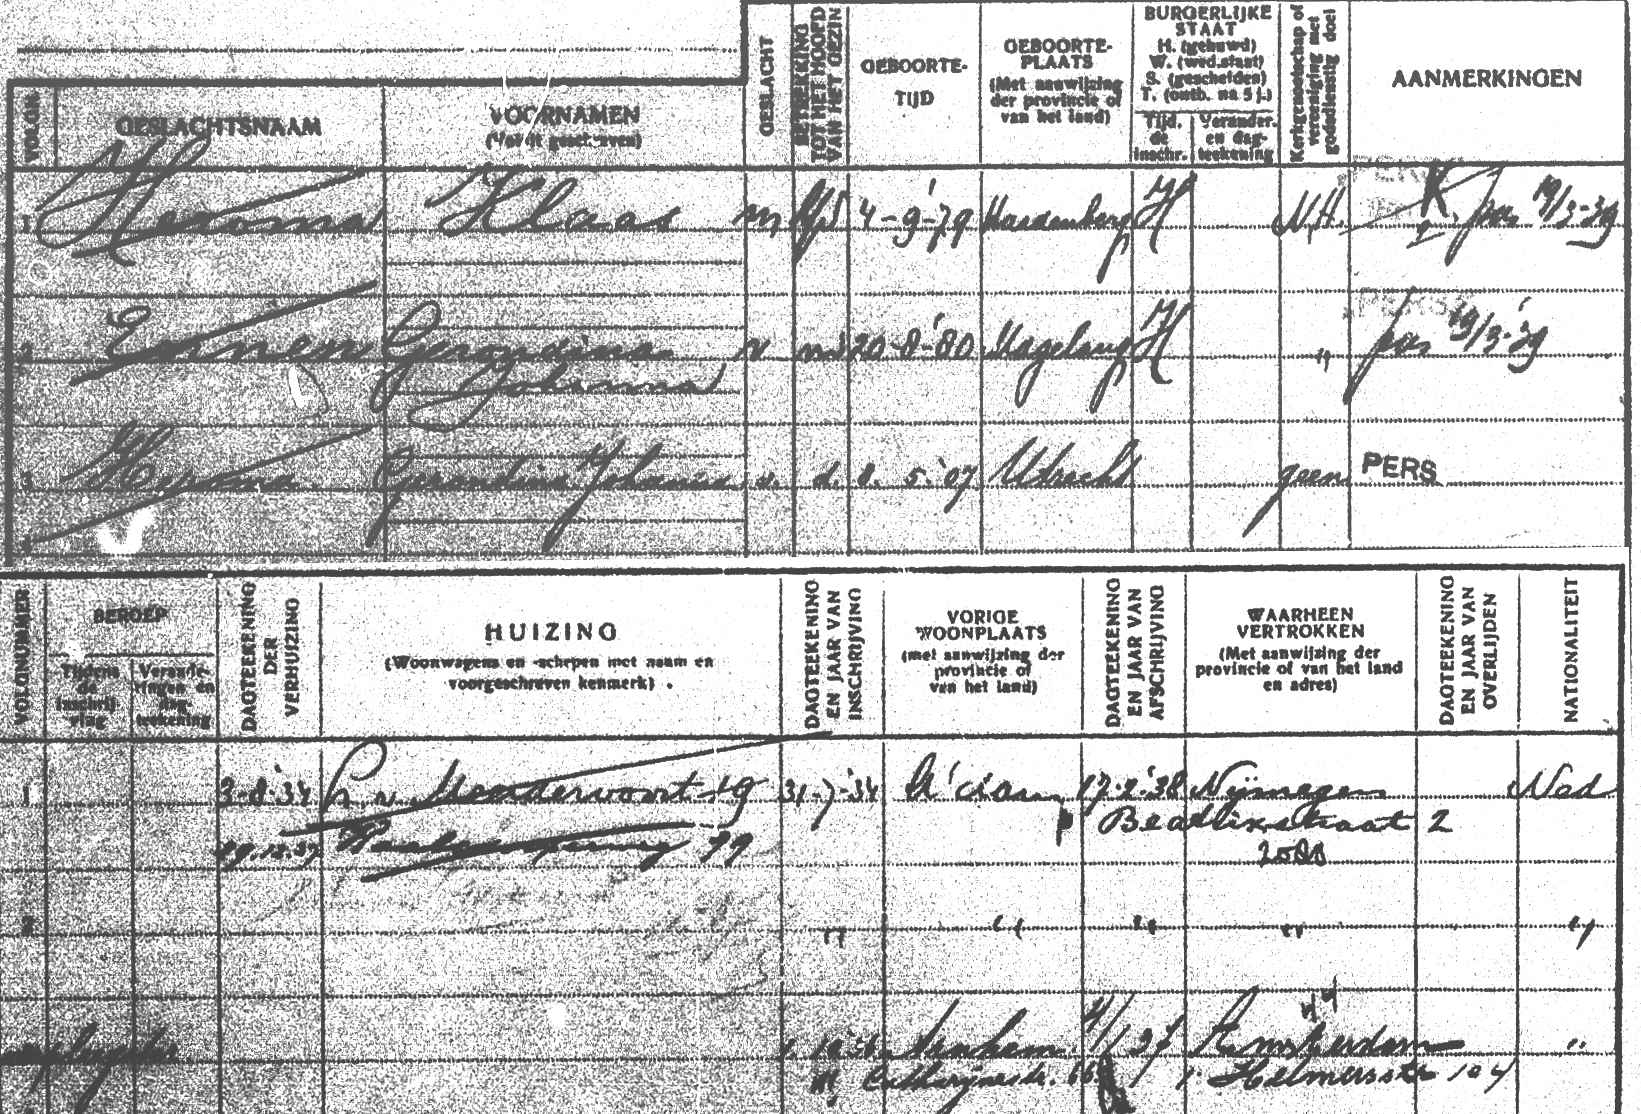 VOLGN.
GESLACHTSNAAM
VOORNAMEN
GESLACHT
BETREKKING TOT HET HOOFD VAN HET GEZIN
GEBOORTE-
TIJD
GEBOORTE-
PLAATS
(Met aanwijzing
der provincie of
van het land)
BURGERLIJKE
STAAT
H. (gehuwd)
W. (wed.staat)
S. (gescheiden)
T. (ontb. na 5 j.)
Tijd.
de
inschr.
Verander.
en dag-
teekening
Kerkgenootschap of vereeniging met godsdienstig doel
AANMERKINGEN
1 Heroma Klaas m hfd 4-9-'79 Hardenberg H N.H. K pers 19/3-39
2 Ernen Gerardina v 20-8-'80 Magelang H " pers 19/3-'39
Johanna
3 Heroma Gerardina Johanna v. d. 8. 5. '07 Utrecht geen PERS
4
VOLGNUMMER
BEROEP
Tijdens
de
inschrij
ving
Verande-
ringen en
dag
teekening
DAGTEEKENING DER VERHUIZING
HUIZING
(Woonwagens en -schepen met naam en
voorgeschreven kenmerk) .
DAGTEEKENING EN JAAR VAN INSCHRIJVING
VORIGE
WOONPLAATS
(met aanwijzing der
provincie of
van het land)
DAGTEEKENING EN JAAR VAN AFSCHRIJVING
WAARHEEN
VERTROKKEN
(Met aanwijzing der
provincie of van het land
en adres)
DAGTEEKENING EN JAAR VAN OVERLIJDEN
NATIONALITEIT
1 3-8-'34 L. v. Meerdervoort 19 31-7-'34 A'dam 17-2-'38 Nijmegen Ned
Beatrixstraat 2
29.12.37 99
2 " " " " "
Arnhem 4/1 37 Amsterdam "
Catharijnestr. 66 Helmersstr 104